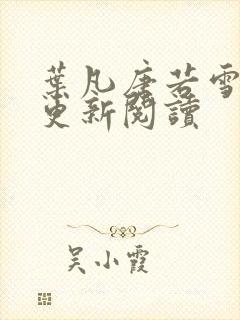 葉凡唐若雪
更新閱讀
吴小霞